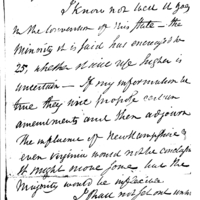 I know not well it goes
in the Convention of this State – the
Minority it is said has encreased to
25, whether it will rise higher is
uncertain – If my information be
true they will propose certain
amendments and then adjourn
The influence of New Hampshire &
even Virginia would not be
it might move some but the
Majority would be
I shall not set out